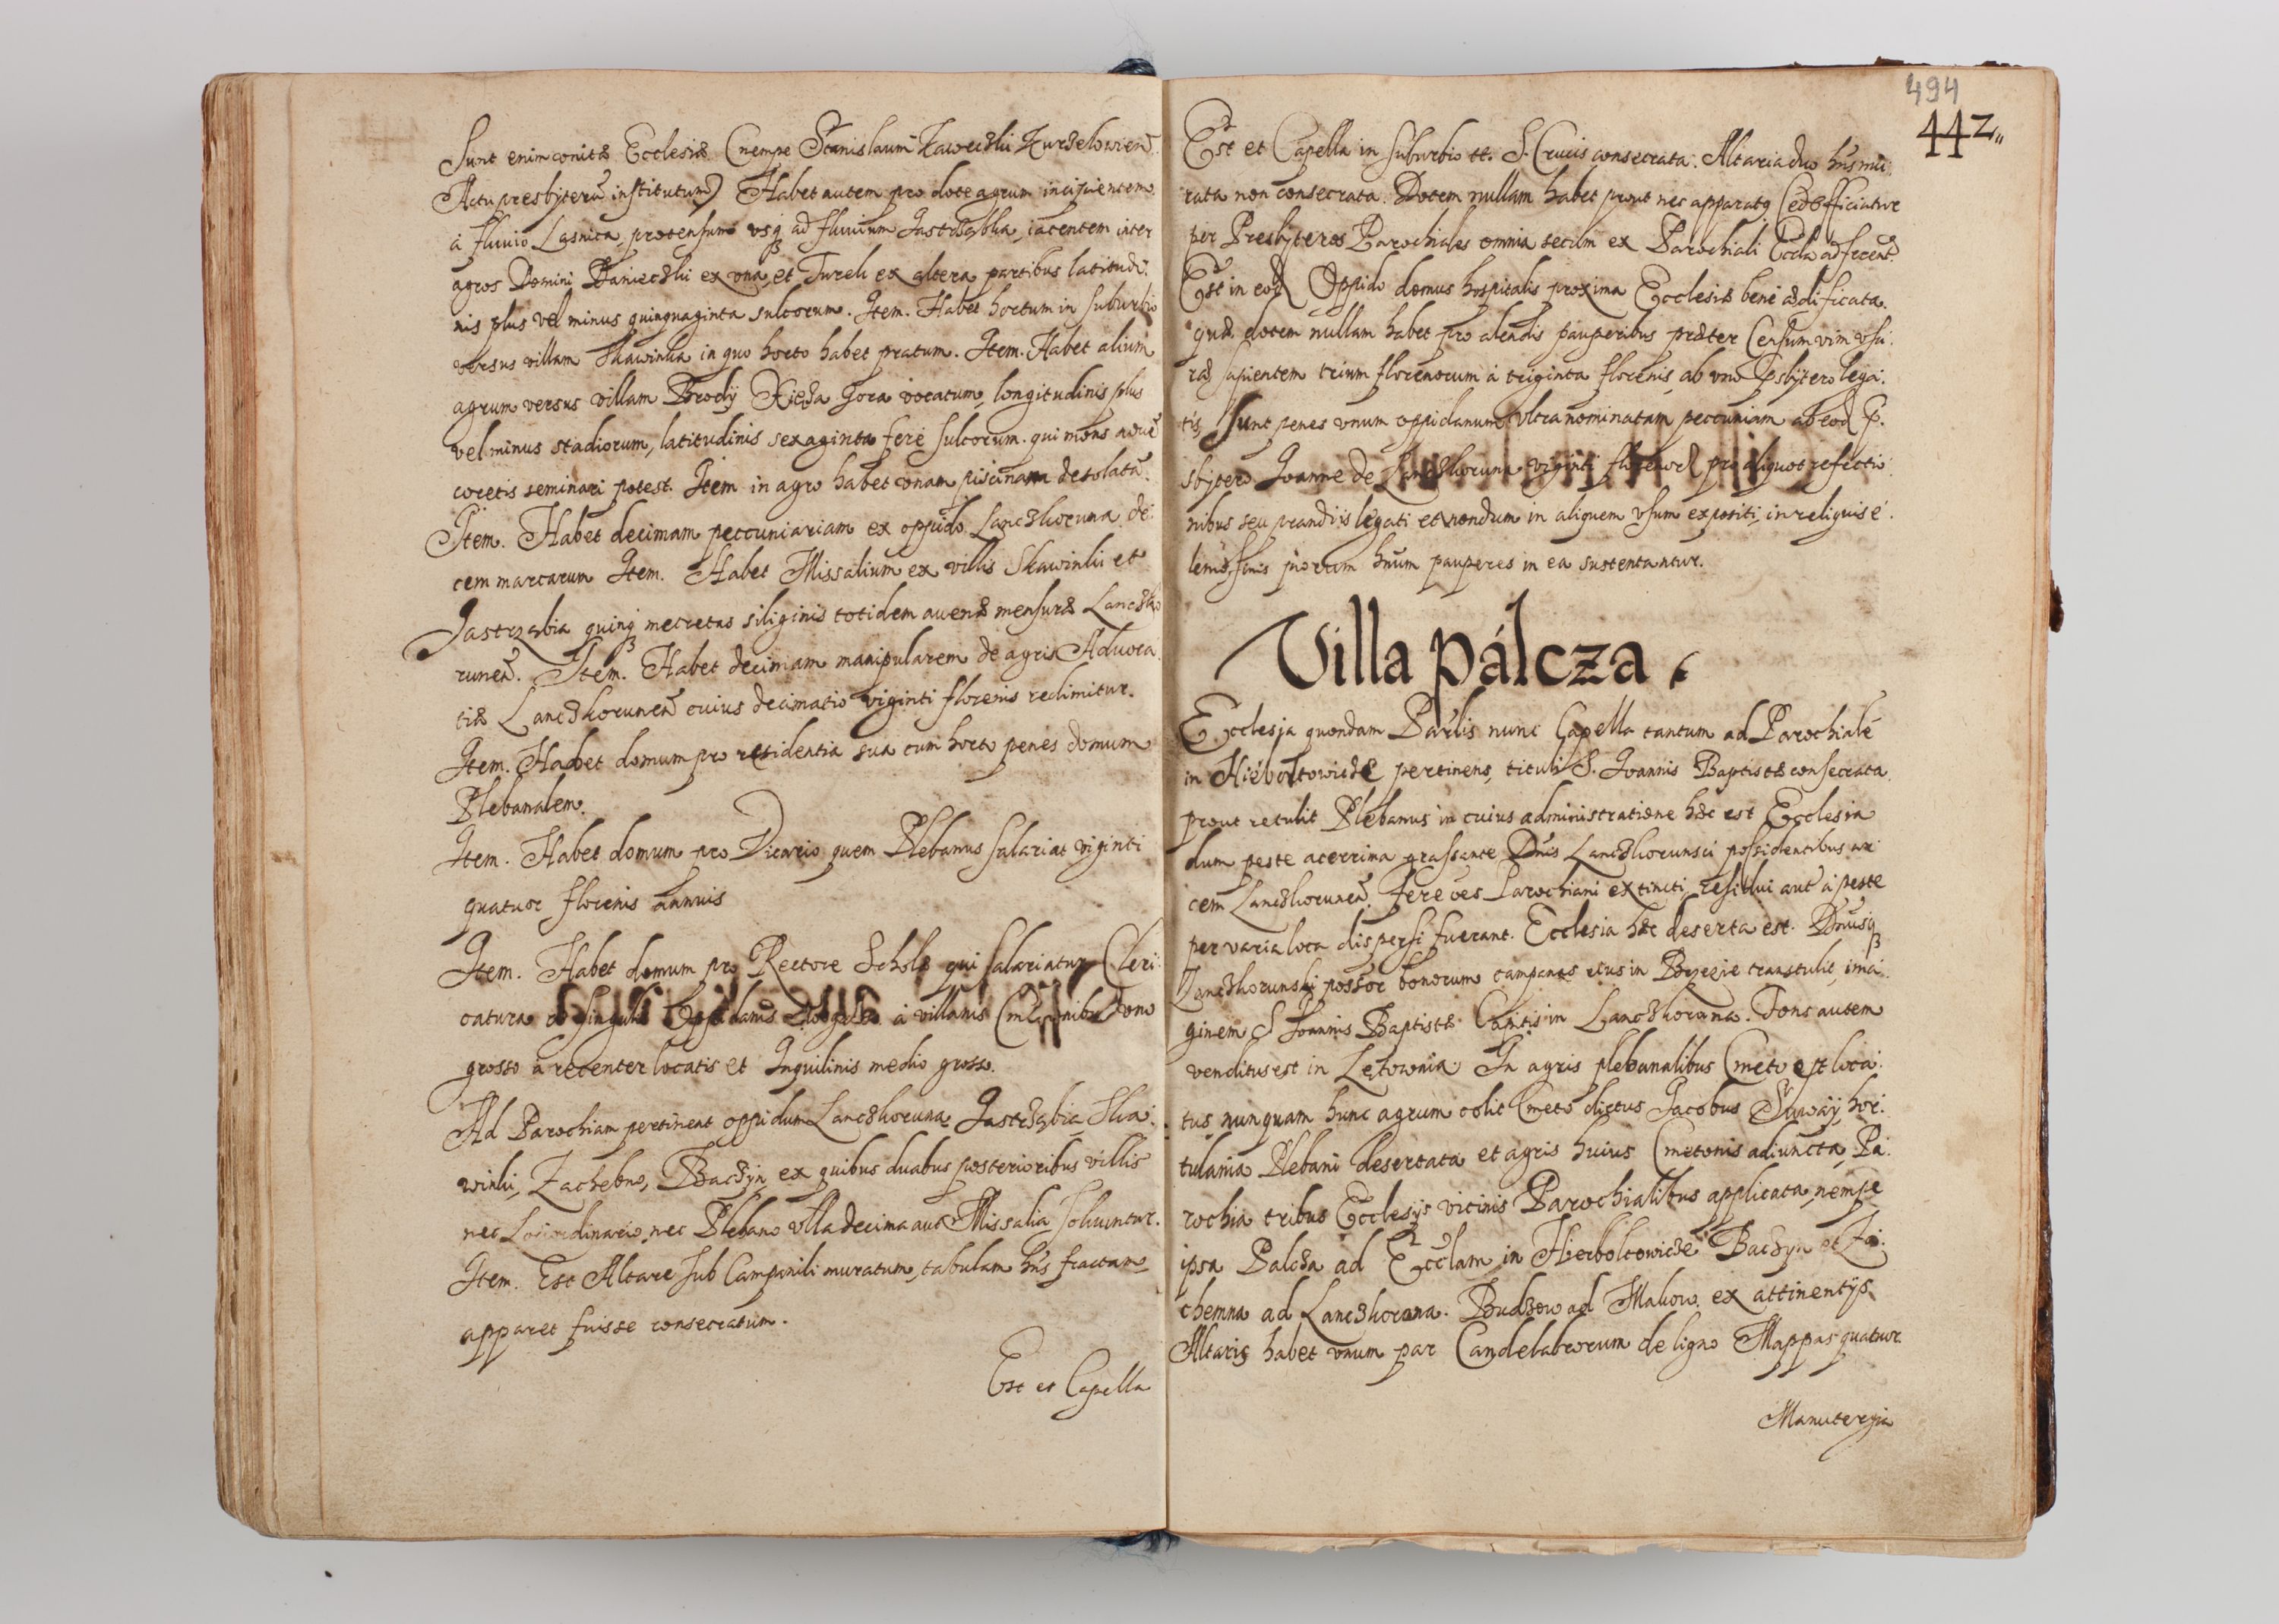 Sunt enim unitæ Ecclesiæ (nempe Stanislaum Kaweczki Kurzelowien̄.
Actu presbyterū institutum) Habet autem pro dote agrum incipientem
à fluvioLąsnica, protensum usq₃ ad fluvium Jastrząbka, iacentem inter
agros Domini Daniecżki ex una, et Turek ex altera partibus latitudi:
nis plus vel minus quinquaginta sulcorum. Item. Habet hortum in suburbio
versus villam Skawinka in quo horto habet pratum. Item. Habet alium
agrum versus villam Brody Xieża Gora vocatum, longitudinis plus
vel minus stadiorum, latitudinis sexaginta ferè sulcorum. qui mons
coretis seminari potest. Item in agro habet unam piscinam desolatā.
Item. Habet decimam peccuniariam ex oppido Lanczkoruna de:
cem marcarum Item. Habet Missalium ex villis Skawinki et
Jastrząbia quinq₃ metretas siliginis totidem avenæ mensuræ Lanczko
runen̄. Item. Habet decimam manipularem de agris Advoca:
tiæ Lanczkorunen̄ cuius decimatio viginti florenis redimitur.
Item. Habet domum pro residentia sua cum horto penes domum
Plebanalem.
Item. Habet domum pro Vicario quem Plebanus salariat viginti
quatuor florenis annuis
Item. Habet domum pro Rectore Scholæ qui salariatur Cleri:
catura à singulis Oppidanis à villanis Cmetonibus uno
grosso à recenter locatis et Inquilinis medio grosso.
Ad Parochiam pertinent oppidum Lanczkoruna, Jastrząbia Ska:
winki, Zachełno, Baczyn, ex quibus duabus posterioribus villis
nec Loci ordinario, nec Plebano ulla decima aut Missalia solvuntur.
Item. Est Altare sub Campanili muratum, tabulam hn̄s fractam
apparet fuisse consecratum.
Est et Capella
494
442
Est et Capella in suburbio tt. S. Crucis consecrata. Altaria duo hn̄s mu:
rata non consecrata. Dotem nullam habet prout nec apparatū sed officiatur
per Presbyteros Parochiales omnia secum ex Parochiali Eccla adferent̄.
Est in eod Oppido domus hospitalis proxima Ecclesiæ bene ædificata.
quæ dotem nullam habet pro alendis pauperibus præter Censum vim usu:
ræ sapientem trium florenorum à triginta florenis, ab uno Psbytero lega:
tis, Sunt penes unum oppidanum ultra nominatam peccuniam ab eod P.
sbytero Joanne de Lanczkoruna viginti floreni pro aliquot refectio
nibus seu prandiis legati et nondum in aliquem usum expositi, in reliquis e:
lemos: finis piorum hn̄um pauperes in ea sustentantur.
Villa Pálcza.
Ecclesia quondam Parlis nunc Capella tantum ad Parochialē
in Hierboltowicze pertinens, tituli S. Joannis Baptistæ consecrata.
prout retulit Plebanus in cuius administratione hæc est Ecclesia
dum peste acerrima grassante Dn̄is Lanczkorunsci possidentibus ar:
cem Lanczkorunen̄. Fere oēs Parochiani extincti, residui aut à peste
per varia loca dispersi fuerant. Ecclesia hæc deserta est. Dn̄usq₃
Lanczkorunski possōr bonorum campanas eius in Brzezie transtulit, ima:
ginem S Joannis Baptistæ Capitis in Lanczkoruna. Fons autem
venditus est in Lętownia In agris plebanalibus Cmeto est loca:
tus nunquam hunc agrum colit Cmeto dictus Jacobus hor:
tulania Plebani desertata et agris huius Cmetonis adiuncta, Pa:
rochia tribus Ecclesijs vicinis Parochialibus applicata, nempe
ipsa Palcza ad Ecclam in Hierboltowicze Baczyn et Za:
chemna ad Lanczkorona. Budzow ad Makow. ex attinentijs
Altaris habet unum par Candelabrorum de ligno Mappas quatuor
Manutergia